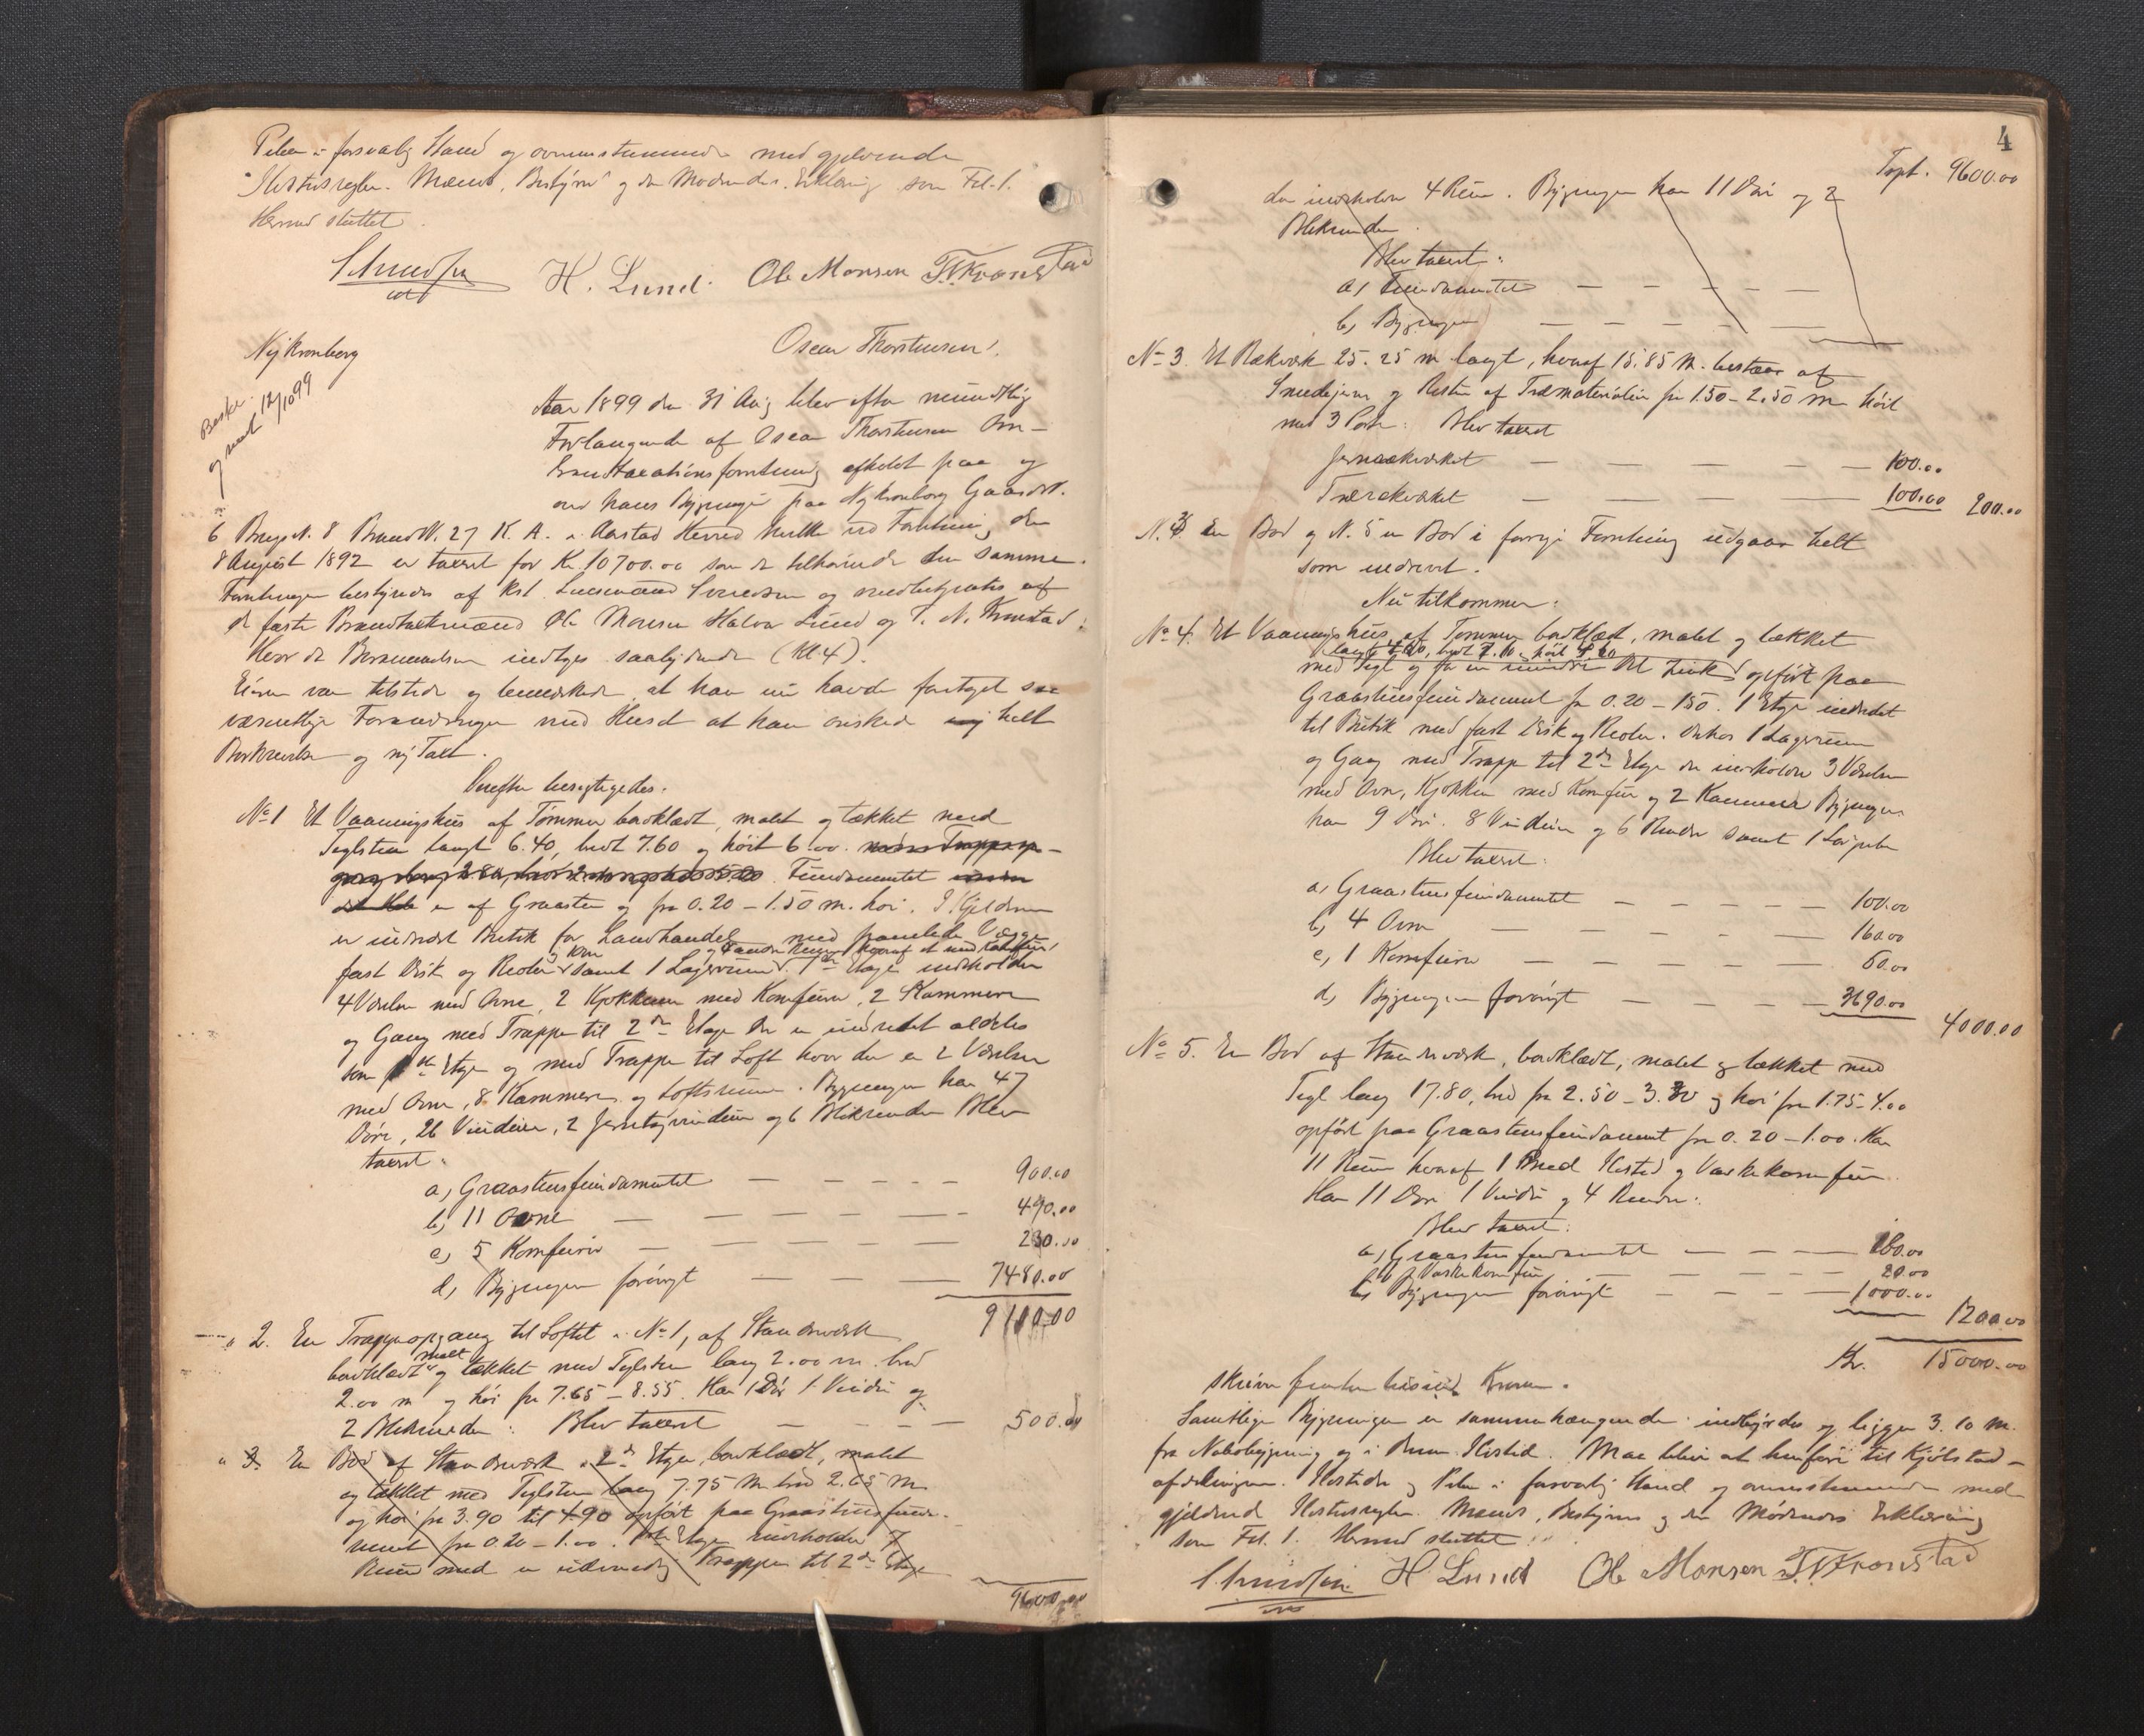 Piben i forsvarlig Stand og overensstemmende med gjeldende
Ildstedsregler. Mænds, Bestyrers og de Mødendes Erklæring som Fol. 1.
Hermed sluttet.
H. Lund. Ole Monsen T. N. Kronstad
Nykronborg
Oscar Thorstensen.
Beskr.
og med 12/10 99
Aar 1899 den 31 Aug blev efter mundtlig
Forlangende af Oscar Thorstensen Om-
brandtaxationsforretning afholdt paa og
over hans Bygninger paa Nykronborg Gaards N.
6 Brugs N. 8 Brand N. 27 K. A. i Aarstad Herred hvilke ved Forretning den
8 August 1892 er taxeret for Kr. 10700.00 som da tilhørende den samme.
Forretningen bestyredes af Kst. Lensmand Svendsen og medbetjentes af
de faste Brandtaxtmænd Ole Monsen Halvor Lund og T. N. Kronstad.
Hvor da Berammelsen indtages saalydende (Kl. 4).
Eieren var tilstede og bemærkede at han nu havde foretaget saa
væsentlige Forandringer med Huset at han ønskede helt
Beskrivelse og ny Taxt.
Derefter besigtigedes:
No 1 Et Vaaningshus af Tømmer bordklædt, malet og tækket med
Teglsten langt 6.40, bredt 7.60 og høit 6.00.
Fundamentet
er af Graasten og fra 0.20 - 1.50 m. høi. I Kjelderen
er indredet Butik for Landhandel med panelede Vægge
fast Disk og Reoler samt 1 Lagerrum. 1ste Etage indeholder
4 Værelser med Ovne, 2 Kjøkkener med Komfurer, 2 Kammere
og Gang med Trappe til 2den Etage der er indredet aldeles
som 1ste Etage og med Trappe til Loft hvor der er 2 Værelser
med Ovne, 8 Kammere og Loftsrum. Bygningen har 47
Døre, 26 Vinduer, 2 Jerntagvinduer og 6 Blikrender Blev
taxeret.
a, Graastensfundamentet — — — — — 900.00
b, 11 Ovne — — — — — 490.00
c, 5 Komfurer — — — — — 230.00
d, Bygningen forøvrigt — — — 7480.00
9100.00
" 2. En Trappeopgang til Loftet i No 1, af Standerværk
malt
bordklædt og tækket med Teglsten lang 2.00 m. bred
2.00 m og høi fra 7.65 - 8.55. Har 1 Dør 1 Vindu og
2 Blikrender: Blev taxeret — — — — 500.00
" 3. En Bod af Standerværk i 2de Etager, bordklædt, malet
og tækket med Teglsten lang 7.75 m bred 2.65 m
og høi fra 3.90 til 4.90 opført paa Graastensfunda-
ment fra 0.20 - 1.00. 1ste Etage indeholder 7
Rum med en udvendig Trappe til 2den Etage
9600.00
4
Tspt. 9600.00
der indeholder 4 Rum. Bygningen har 11 Døre og 2
Blikrender.
Blev taxeret:
a, Fundamentet — — — — —
b, Bygningen — — — — —
No 3. Et Rækværk 25.25 m langt, hvoraf 15.85 m. bestaar af
Smedejern og Resten af Træmaterialier fra 1.50 - 2.50 m høit
med 3 Porte: Blev taxeret
Jernrækværket — — — — — 100.00
Trærækværket — — — — — 100.00 200.00
En Bod og N. 5 en Bod i forrige Forretning udgaar helt
som nedrevet.
Nu tilkommer:
No 4. Et Vaaningshus af Tømmer bordklædt, malet og tækket
med Tegl og for en mindre Del Zink opført paa
Graastensfundament fra 0.20 - 1.50. 1 Etage indredet
til Butik med fast Disk og Reoler. Derhos 1 Lagerrum
og Gang med Trappe til 2den Etage der indeholder 3 Værelser
med Ovn, Kjøkken med Komfur og 2 Kammere Bygningen
har 9 Døre. 8 Vinduer og 6 Render samt 1
Blev taxeret:
a, Graastensfundamentet — — — — — 100.00
b, 4 Ovne — — — — — 160.00
c, 1 Komfur — — — — — 50.00
d, Bygningen forøvrigt — — — — 3690.00
4000.00
No 5. En Bod af Standerværk, bordklædt, malet og tækket med
Tegl lang 17.80, bred fra 2.50 - 3.20 og høi fra 1.75 - 4.00
opført paa Graastensfundament fra 0.20 - 1.00. Har
11 Rum hvoraf 1 med Ildsted og Vaskekomfur.
Har 11 Døre 1 Vindu og 4 Render.
Blev taxeret:
a, Graastensfundamentet — — — 180.00
Vaskekomfur — — — — 20.00
Bygningen forøvrigt — — — — 1000.00
1200.00
Kr. 15000.00
skriver femten tusind Kroner.
Samtlige Bygninger er sammenhængende indbyrdes og ligger 3.10 m.
fra Nabobygning og i Rum Ildsted. Maa blive at henføre til Kjøbstad-
afdelingen. Ildsteder og Piber i forsvarlig Stand og overensstemmende med
gjeldende Ildstedsregler. Mænds, Bestyrers og de Mødendes Erklæring
som Fol. 1. Hermed sluttet.
H Lund Ole Monsen T. N. Kronstad